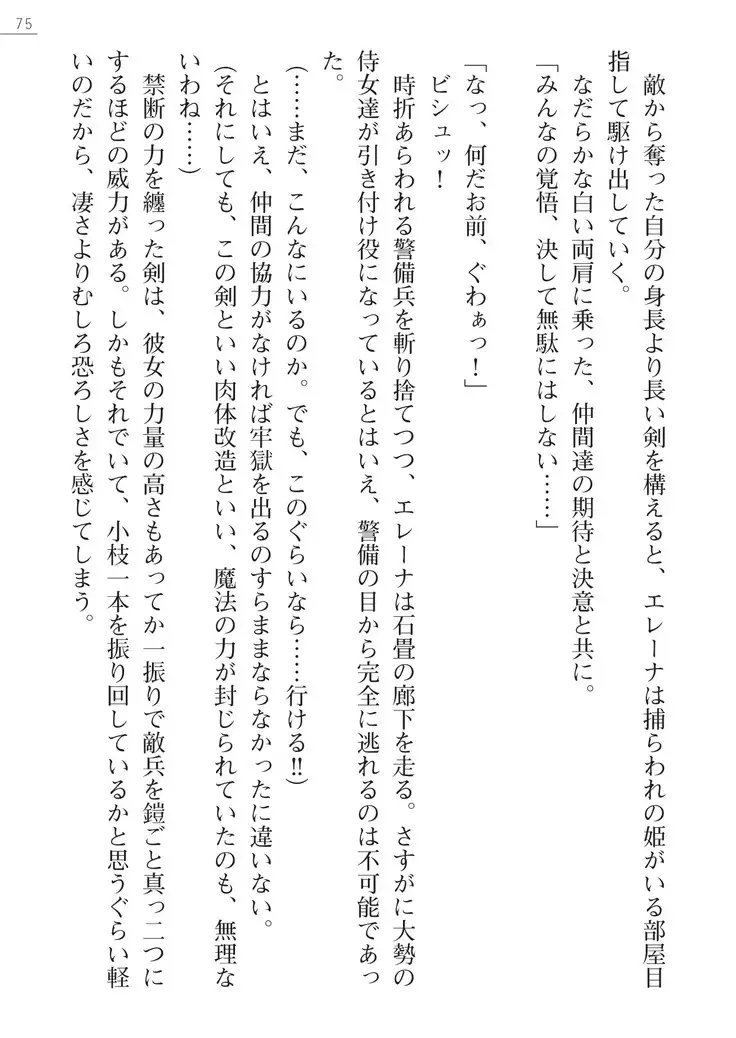 75
　敵から奪った自分の身長より長い剣を構えると、エレーナは捕らわれの姫がいる部屋目
指して駆け出していく。
　なだらかな白い両肩に乗った、仲間達の期待と決意と共に。
「みんなの覚悟、決して無駄にはしない……」
「なっ、何だお前、ぐわぁっ！」
　ビシュッ！
　時折あらわれる警備兵を斬り捨てつつ、エレーナは石畳の廊下を走る。さすがに大勢の
侍女達が引き付け役になっているとはいえ、警備の目から完全に逃れるのは不可能であっ
た。
（……まだ、こんなにいるのか。でも、このぐらいなら……行ける‼）
　とはいえ、仲間の協力がなければ牢獄を出るのすらままならなかったに違いない。
（それにしても、この剣といい肉体改造といい、魔法の力が封じられていたのも、無理な
いわね……）
　禁断の力を纏った剣は、彼女の力量の高さもあってか一振りで敵兵を鎧ごと真っ二つに
するほどの威力がある。しかもそれでいて、小枝一本を振り回しているかと思うぐらい軽
いのだから、凄さよりむしろ恐ろしさを感じてしまう。